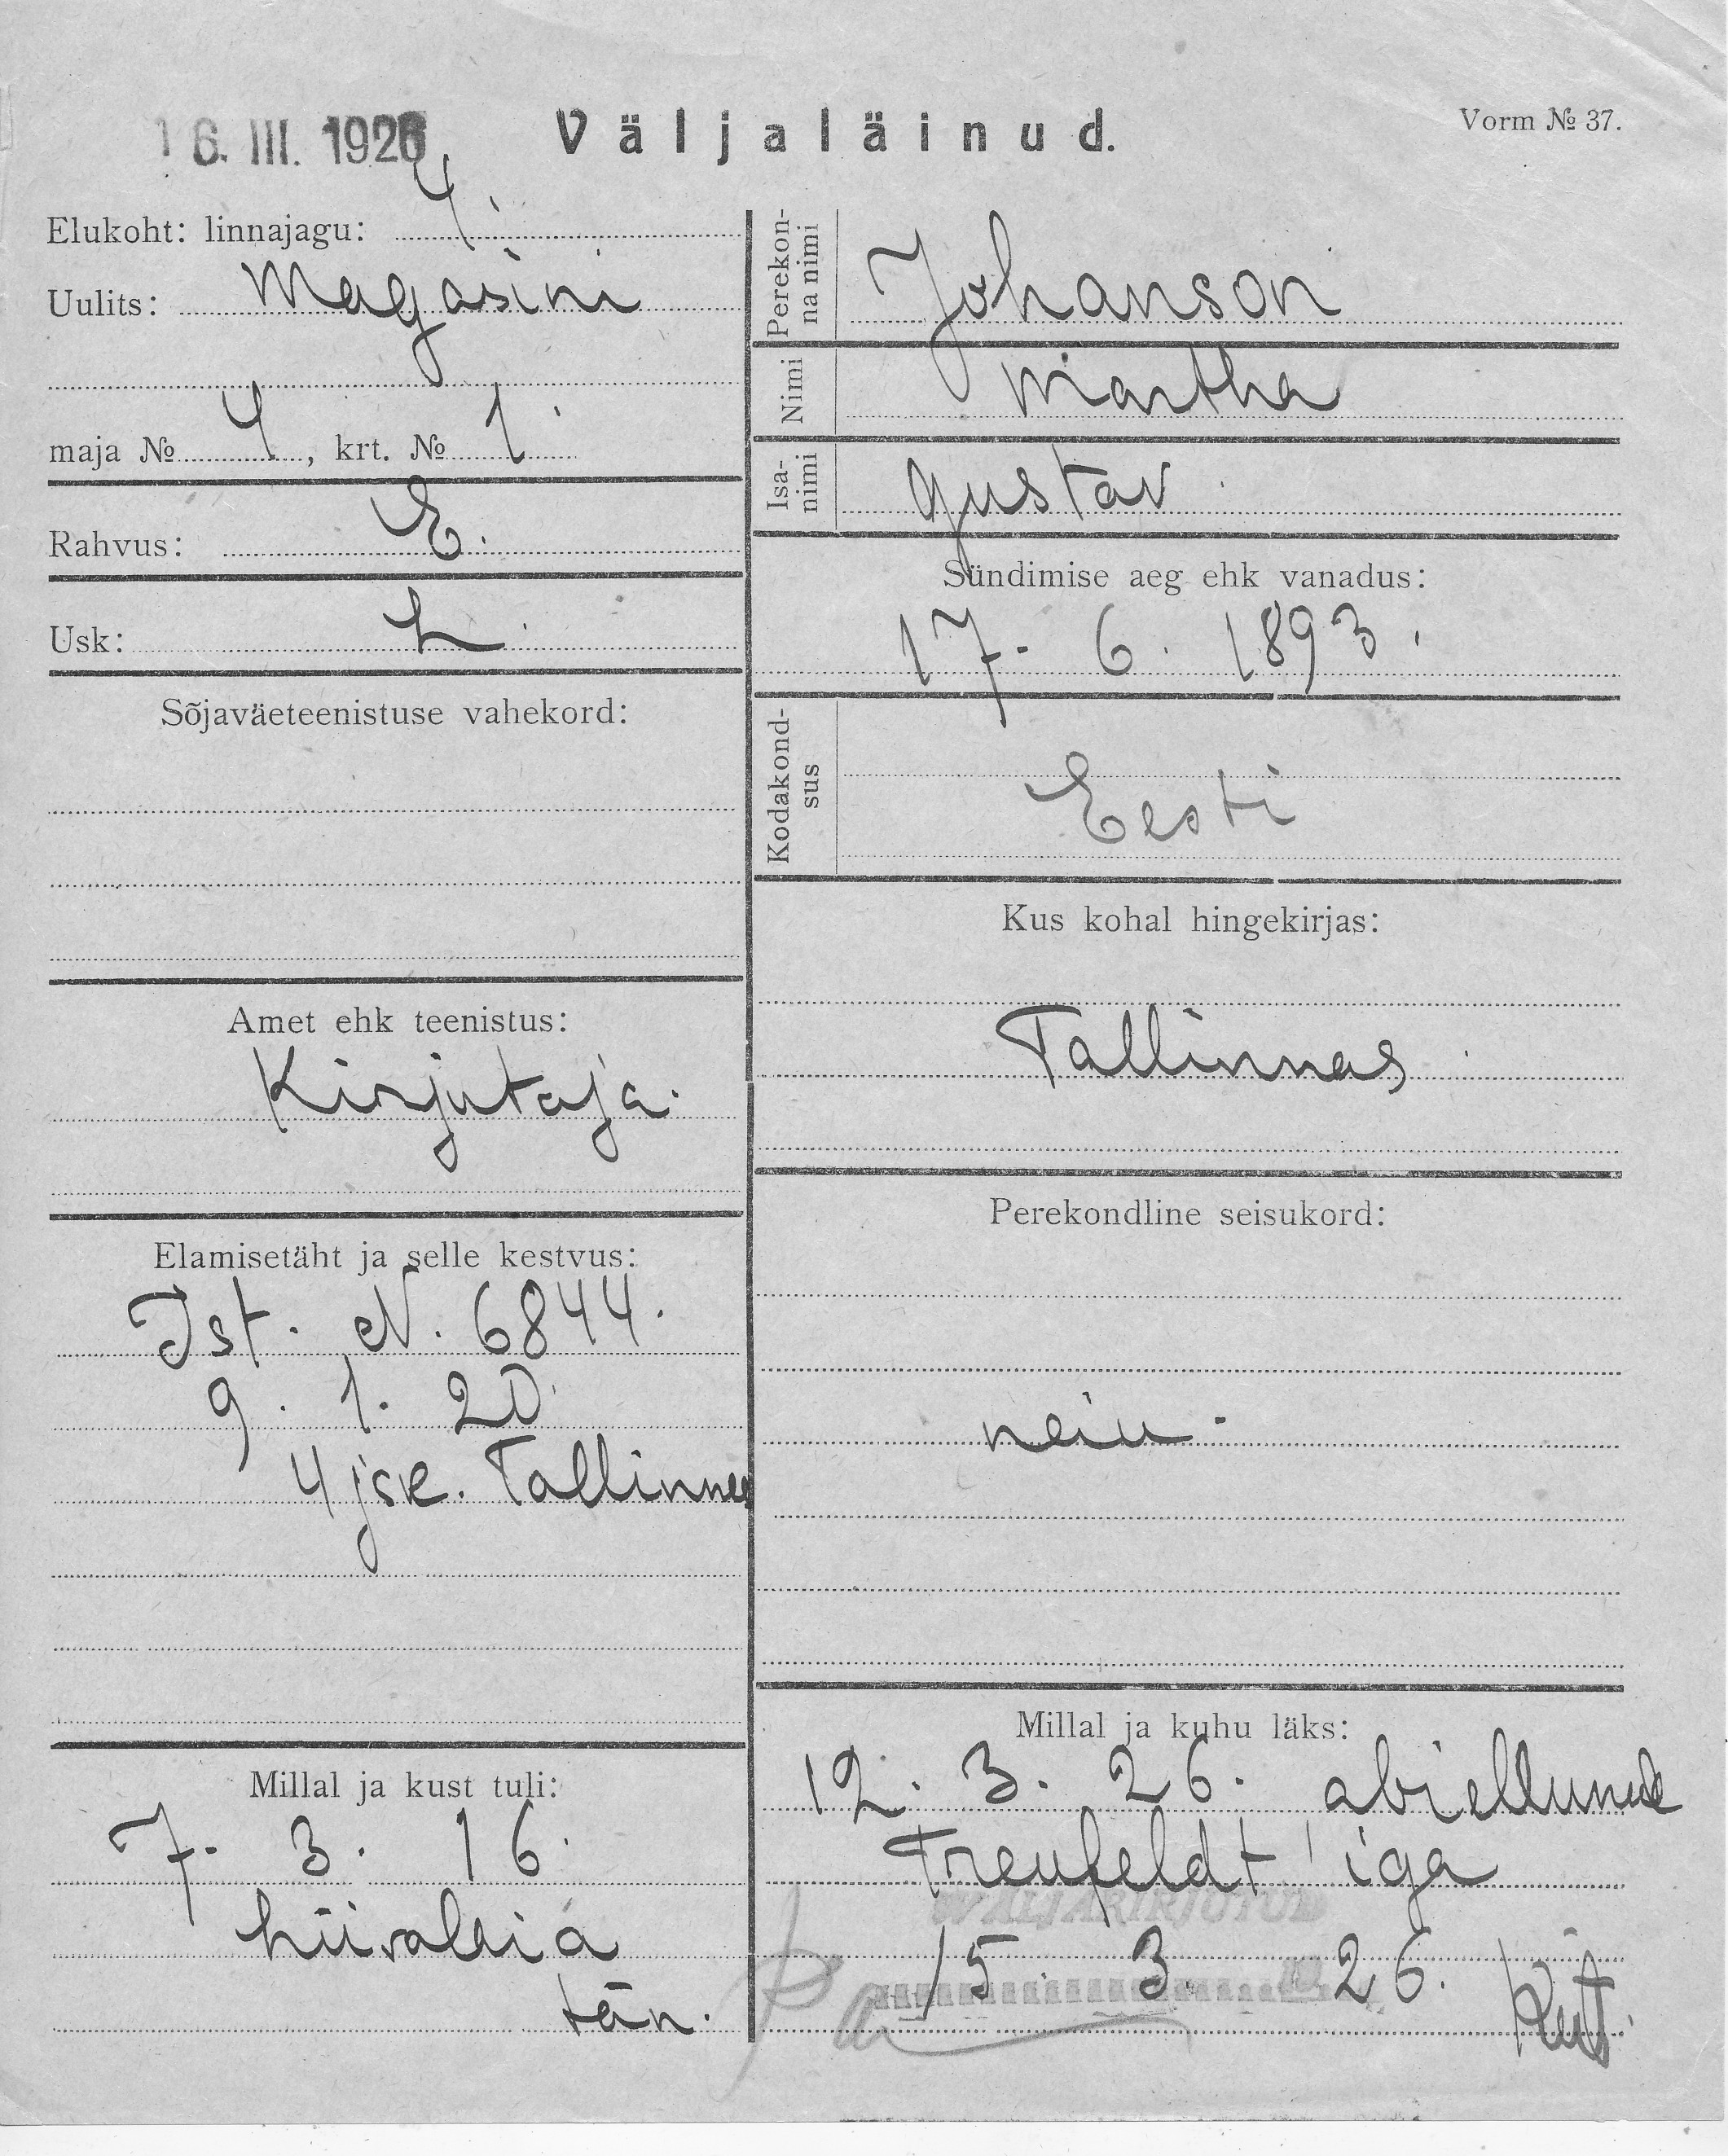 16. III. 1926
Väljaläinud.
Vorm № 37.
Elukoht: linnajagu: 4.
Uulits: Magasini
maja № 4, krt. № 1.
Rahvus: E.
Usk: L.
Sõjaväeteenistuse vahekord:
Amet ehk teenistus:
Kirjutaja.
Elamisetäht ja selle kestvus:
Ist. N. 6844.
9. 1. 20.
4 jsk. Tallinnas
Millal ja kust tuli:
7. 3. 16.
hiivaldia
tän.
Perekon-
na nimi
Johanson
Nimi
Martha
Isa-
nimi
Gustav
Sündimise aeg ehk vanadus:
17. 6. 1893.
Kodakond-
sus
Eesti
Kus kohal hingekirjas:
Tallinnas
Perekondline seisukord:
neiu.
Millal ja kuhu läks:
12. 3. 26. abiellunud
Treufeldt'iga
WÄLJAKIRJUTUD
15. 3. 26.